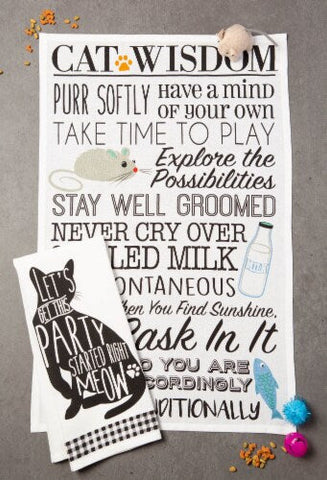 CAT WISDOM
PURR SOFTLY
Have a mind
of your own
TAKE TIME TO PLAY
Explore the
Possibilities
STAY WELL GROOMED
NEVER CRY OVER
LED MILK
ONTANEOUS
hen You Find Sunshine,
ask In It
O YOU ARE
CORDINGLY
DITIONALLY
LET'S
GET THIS
PARTY
STARTED RIGHT
MEOW